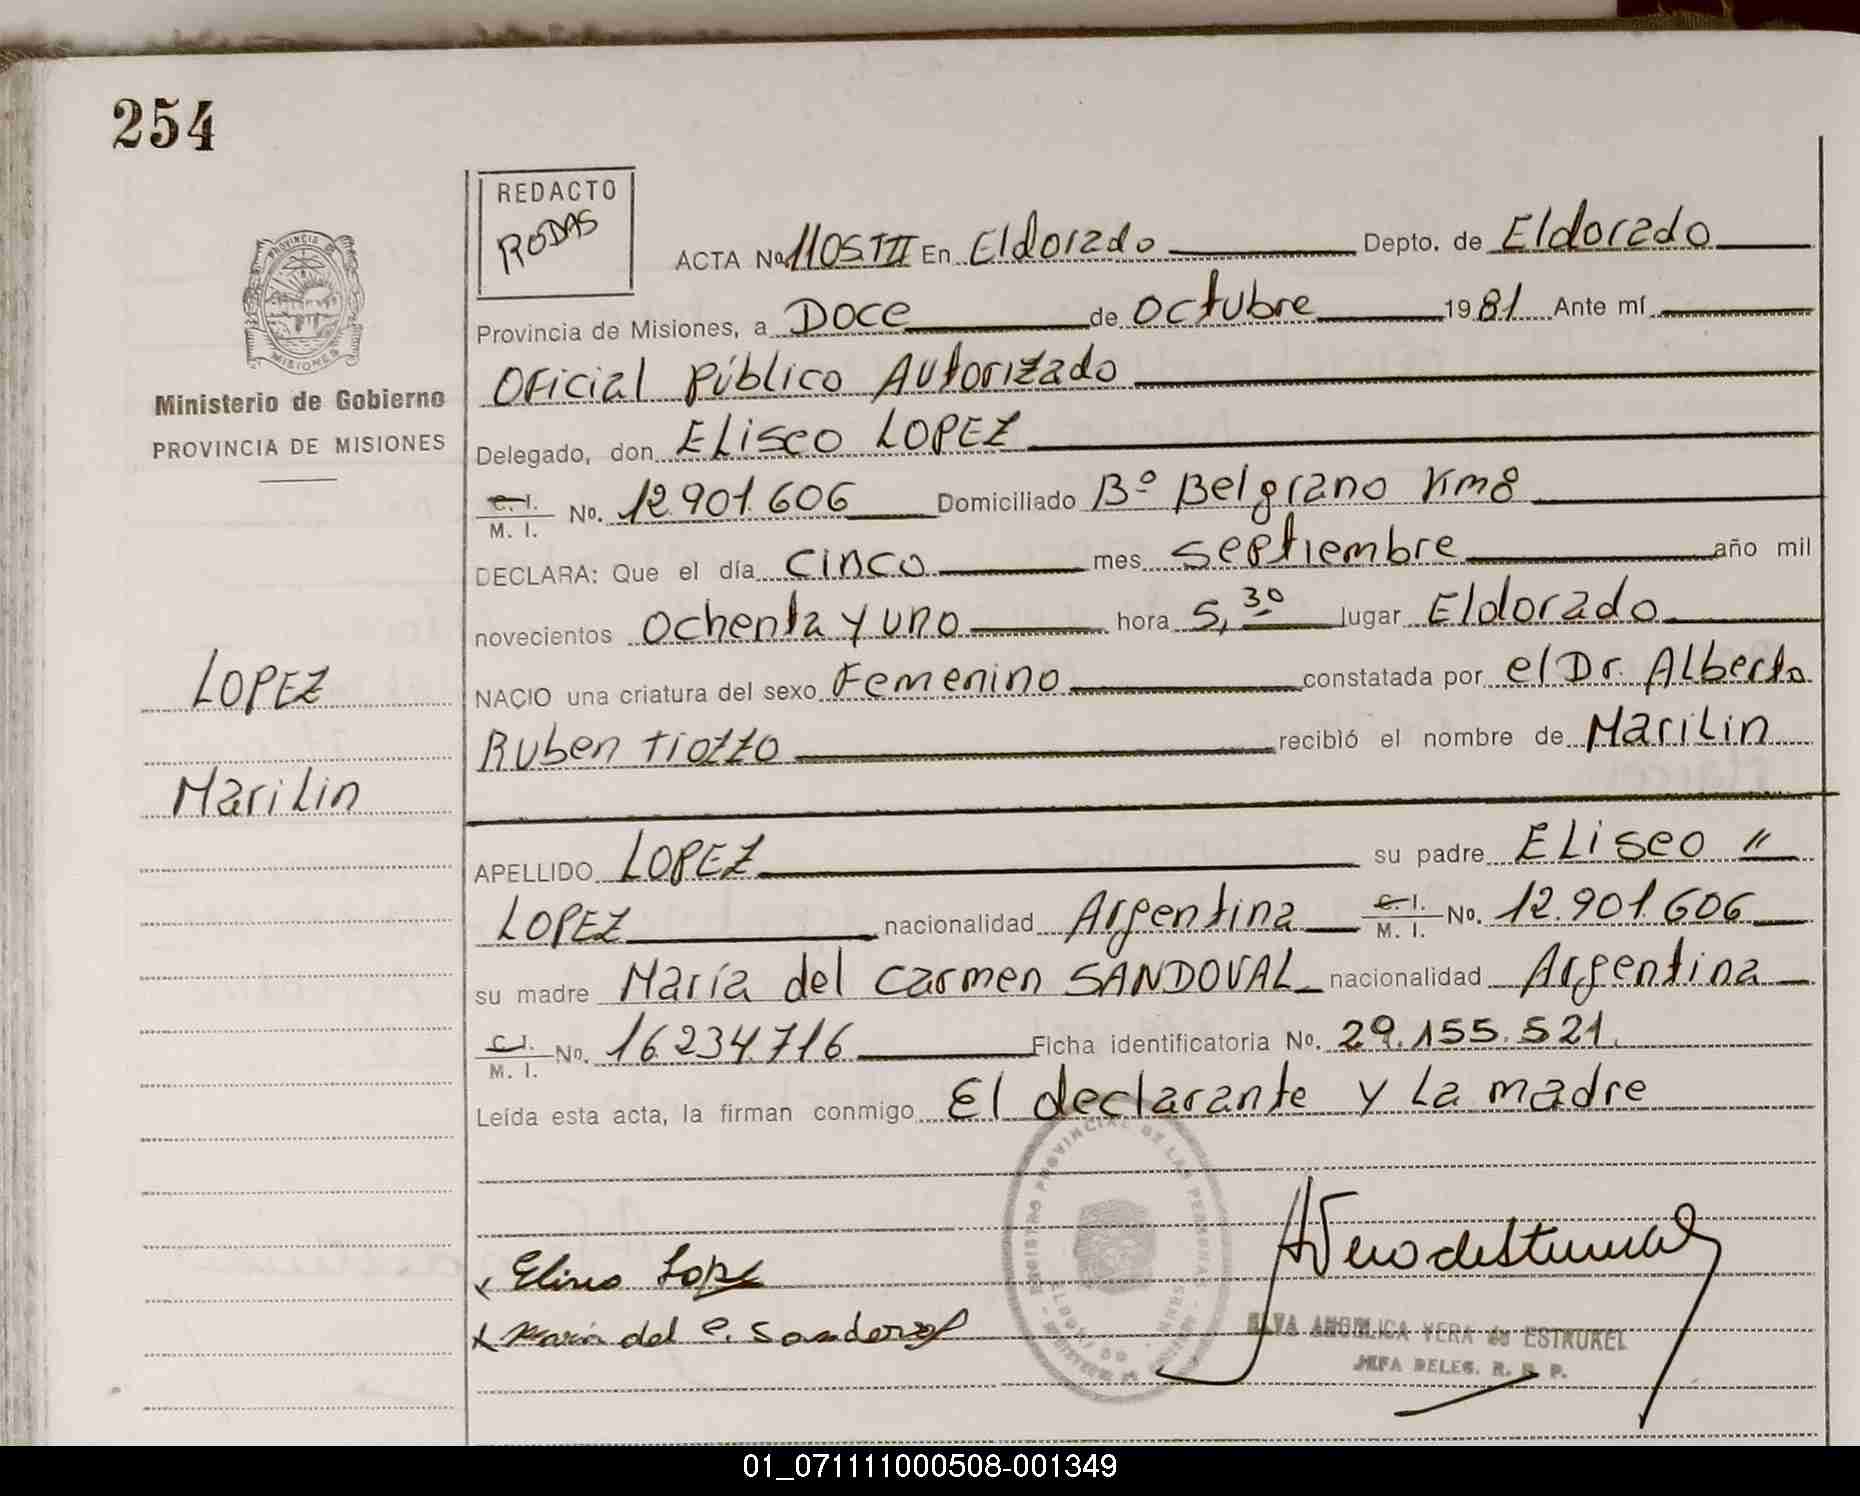 254
REDACTO
RODAS
PROVINCIA DE
MISIONES
Ministerio de Gobierno
PROVINCIA DE MISIONES
ACTA No. 1105 TII En Eldorado Depto. de Eldorado
Provincia de Misiones, a Doce de octubre 1981 Ante mí
Oficial Público Autorizado
Delegado, don Eliseo LOPEZ
C. I. / M. I. No. 12.901.606 Domiciliado Bº Belgrano Km8
DECLARA: Que el día cinco mes septiembre año mil
novecientos ochenta y uno hora 5,30 lugar Eldorado
NACIO una criatura del sexo Femenino constatada por el Dr. Alberto
Ruben Tiozzo recibió el nombre de Marilin
LOPEZ
Marilin
APELLIDO LOPEZ su padre Eliseo "
LOPEZ nacionalidad Argentina C. I. / M. I. No. 12.901.606
su madre María del Carmen SANDOVAL nacionalidad Argentina
C. I. / M. I. No. 16.234.716 Ficha identificatoria No. 29.155.521.
Leída esta acta, la firman conmigo El declarante y la madre
REGISTRO PROVINCIAL DE LAS PERSONAS
x Eliseo Lopez
x Maria del C. Sandoval
ELVA ANGELICA VERA de ESTRUKEL
JEFA DELEG. R. P. P.
01_071111000508-001349